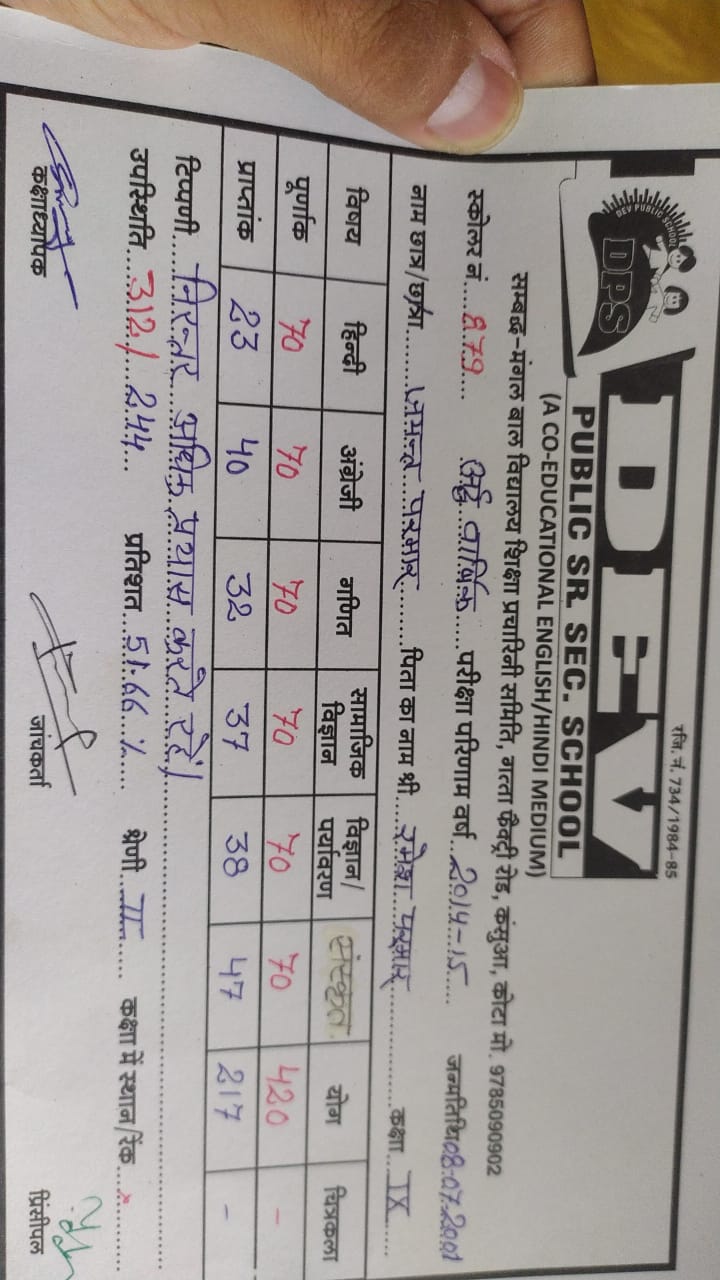 रजि. नं. 734/1984-85
DEV PUBLIC SCHOOL
DPS
DEV
PUBLIC SR. SEC. SCHOOL
(A CO-EDUCATIONAL ENGLISH/HINDI MEDIUM)
सम्बद्ध-मंगल बाल विद्यालय शिक्षा प्रचारिनी समिति, नाता फैक्ट्री रोड, कंसुआ, कोटा मो. 9785090902
स्कोलर नं....879.... अर्द्ध वार्षिक.....परीक्षा परिणाम वर्ष..2014-15.... जन्मतिथि 08-07-2001
नाम छात्र/छात्रा.......परमार.......पिता का नाम श्री....रमेश परमार..............कक्षा...IX....
विषय हिन्दी अंग्रेजी गणित सामाजिक विज्ञान विज्ञान/पर्यावरण संस्कृत योग चित्रकला
पूर्णांक 70 70 70 70 70 70 420 -
प्राप्तांक 23 40 32 37 38 47 217 -
टिप्पणी....निरन्तर अधिक प्रयास करते रहें।
उपस्थिति....312/244.... प्रतिशत...51.66 %.... श्रेणी...II..... कक्षा में स्थान/रेंक....x......
कक्षाध्यापक जांचकर्ता प्रिंसीपल